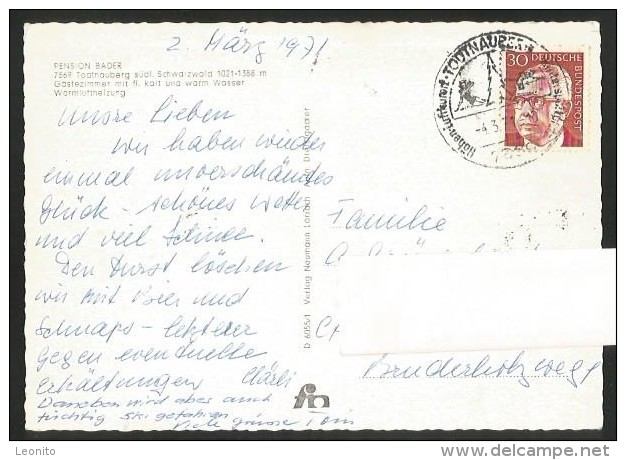 2. März 1971
PENSION BADER
7869 Todtnauberg südl. Schwarzwald 1021-1388 m
Gästezimmer mit fl. kalt und warm Wasser
Warmluftheizung
Unsre Lieben
Wir haben wieder
einmal unverschämtes
Glück - schönes Wetter
und viel Schnee.
Den Durst löschen
wir mit Bier und
Schnaps - letzterer
gegen eventuelle
Erkältungen Chärli
Daneben wird aber auch
tüchtig Ski gefahren
Viele Grüsse
D 6055/1 Verlag Neumann Lörrach Foto
fn
TODTNAUBERG
Höhenluftkurort
-4.3.
30 DEUTSCHE
BUNDESPOST
Familie
CH
Bruderholzweg
Leonito
www.delcampe.net